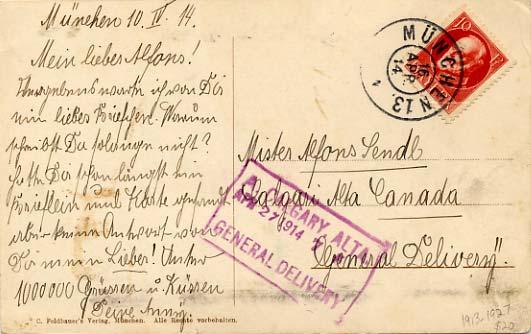 München 10. IV. 14.
Mein lieber Alfons!
Vergebens warte ich von Dir
ein liebes Briefchen. Warum
schreibst Du solange nicht?
hatte Dir schon längst ein
Brieflein und Karte gesandt
aber keine Antwort von
Dir mein Lieber! Unter
1000000 Grüssen u. Küssen
Deine Anny.
© C. Feldbauer's Verlag, München. Alle Rechte vorbehalten.
10
MÜNCHEN 13
APR
14
Mister Alfons Sendl
Calgari Alta Canada
"General Delivery".
CALGARY ALTA.
APR 27 1914
GENERAL DELIVERY
1913-1927